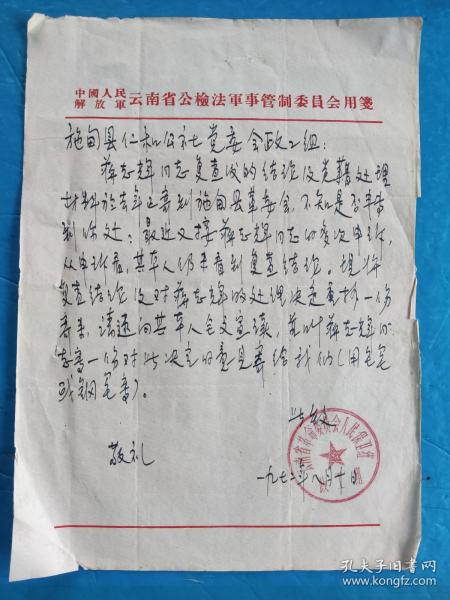 中國人民
解放軍 云南省公檢法軍事管制委員会用箋
施甸县仁和公社党委会政工组：
蒋志辉同志复查后的结论及党籍处理
材料于去年已寄到施甸县革委会，不知是否寄
到你处；最近又接蒋志辉同志的多次申诉，
从申诉看，其本人仍未看到复查结论。现将
复查结论及对蒋志辉的处理决定再抄一份
寄来，请通向其本人全文宣读，并叫蒋志辉同
志写一份对此决定的意见寄给我们（用毛笔
或钢笔写）。
此致
敬礼
云南省革命委员会人民保卫组
一九七二年八月十日
孔夫子旧书网
www.kongfz.com